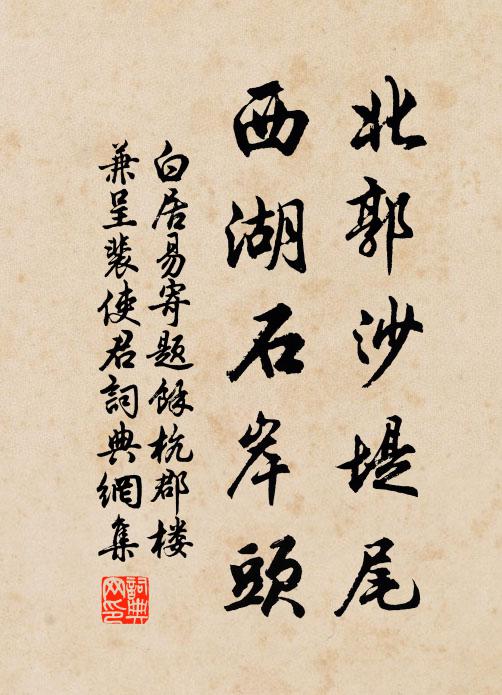 北郭沙堤尾
西湖石岸頭
白居易寄題餘杭郡楼
兼呈裴使君詞典網集
詞典
网印